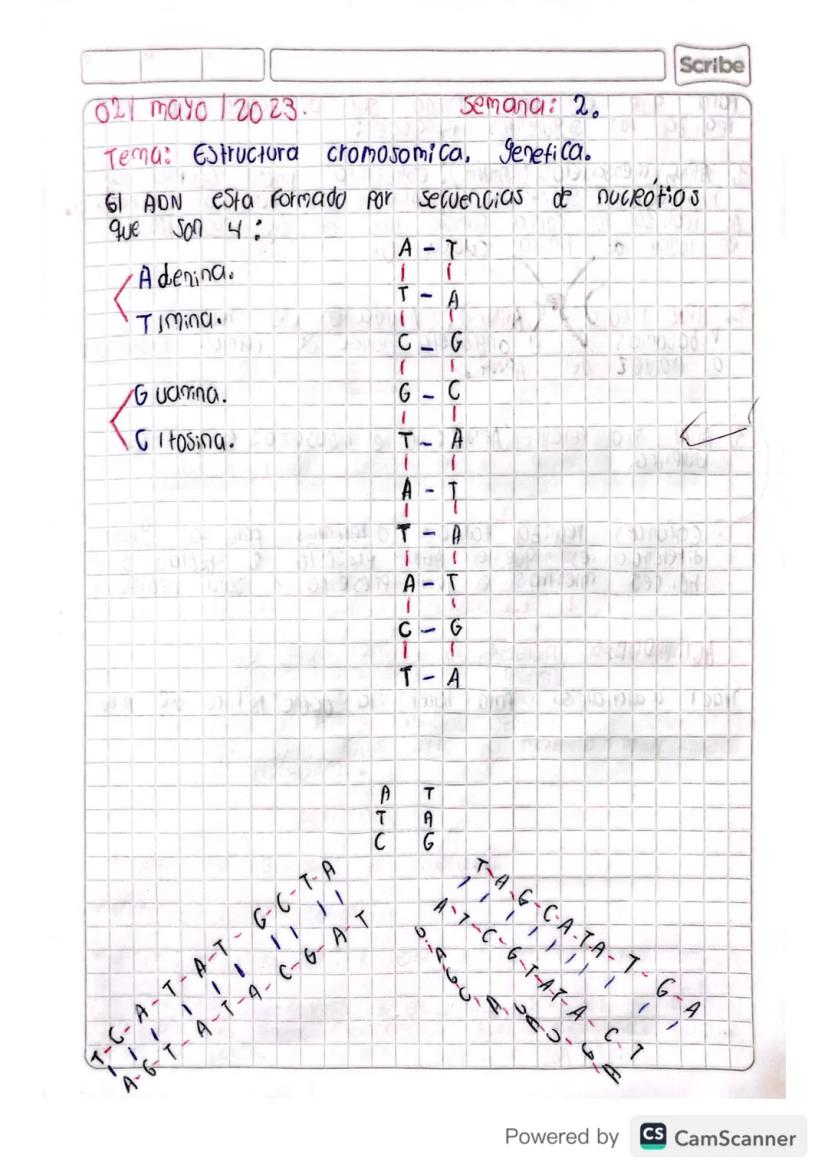 Scribe
02 / mayo / 2023. Semana: 2.
Tema: Estructura cromosomica, genetica.
El ADN esta formado por secuencias de nucreótios
que son 4:
Adenina.
Timina.
Guanina.
Citosina.
A - T
T - A
C - G
G - C
T - A
A - T
T - A
A - T
C - G
T - A
A T
T A
C G
T-C-A-T-A-T-G-C-T-A
A-G-T-A-T-A-C-G-A-T
T-A-G-C-A-T-A-T-G-A
A-T-C-G-T-A-T-A-C-T
Powered by CS CamScanner